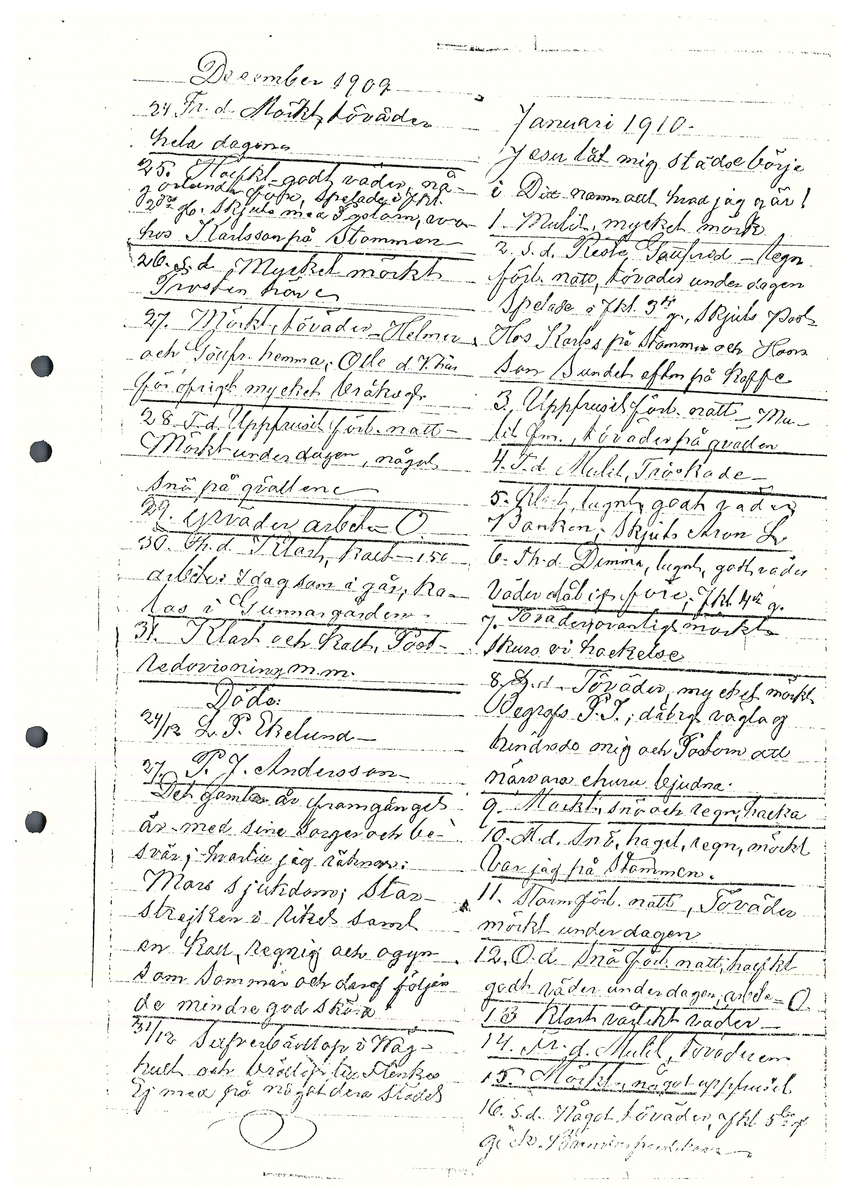 December 1909
24 Fr. d. Mörkt, töväder
hela dagen
25. Härkt godt väder, nå-
före, spelade i Jkl.
g. Skjuts med Postom, var
hos Karlsson på Stommen
26. S. d. Mycket mörkt
Trosten
27. Mörkt, töväder - Helmer
och Gottfr. hemma; Olle d. Y. här
för öfrigt mycket bråksdt
28. T. d. Uppfrusit förl. natt -
Mörkt under dagen, något
snö på qvällene
29. Urväder arbete = O.
30. Th. d. Klart, kalt - 15°
arbete: idag som i går, Ka-
las i Gunnargården
31. Klart och kalt, Post-
redovisning m.m.
Döde:
24/12 L. P. Ekelund -
27. P. J. Andersson -
Det gamla år framgånget
är med sine sorger och be-
svär; hvartil jag räknar:
Mors sjukdom; Stor-
strejken i riket samt
en kall, regnig och ogyn
sam sommar och deraf följan
de mindre god skörd
31/12 Silfverbröllop i Häg-
hult och bröllop
Ej med på något dera stället
Januari 1910.
Jesu lät mig städse börje
i Ditt namn allt hvad jag gör!
1. Mulit, mycket mörkt
2. S. d. Reste Gottfrid - regn
förl. natt, töväder under dagen
Spelade i Jkl. 3dje g., skjuts Post
Hos Karls på Stommen och Hans
son Sundet eftm på Kaffe
3. Uppfrusit förl. natt - Mu-
lit fm., töväder på qvällen
4. T. d. Mulit, Tröskade -
5. Klart, lugnt, godt väder
Banken, skjuts Aron L
6. Th. d. Dimma, lugnt, godt väder
före; Jkl 4de g.
7. Töväder, ovanligt mörkt
skuro vi hackelse
8. L. d. Töväder, mycket mörkt
Begrofs P. J.; dåligt väglag
hindrade mig och Postom att
närvara ehuru bjudna.
9. Mörkt, snö och regn, hacka
10. M. d. Snö, hagel, regn, mörkt
Var jag på Stommen.
11. Storm förl. natt, Töväder
mörkt under dagen
12. O. d. Snö förl. natt, härkt
godt väder under dagen, arbete = O
13 Klart vårlikt väder -
14. Fr. d. Mulit, töväder em
15. Mörkt, något uppfrusit.
16. S. d. Något töväder, Jkl 5te g